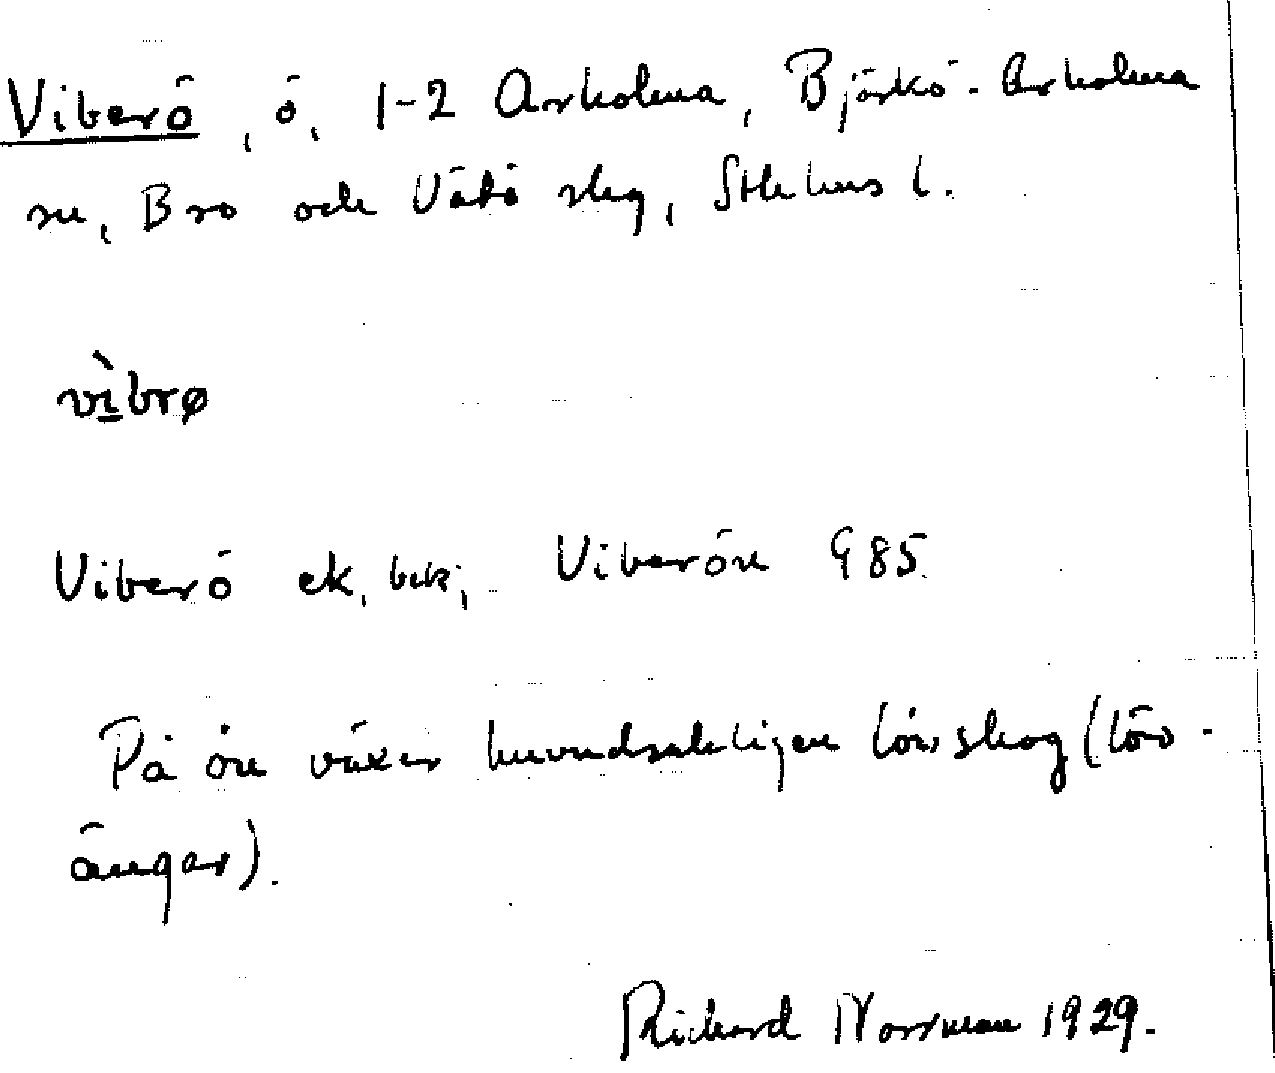 Viberö, ö, 1-2 Arholma, Björkö-Arholma
sn, Bro och Vätö skg, Sthlms l.
vìbrø
Viberö ek. bl.; Viberön G 85.
På ön växer huvudsakligen lövskog (löv-
ängar).
Richard Norrman 1929.